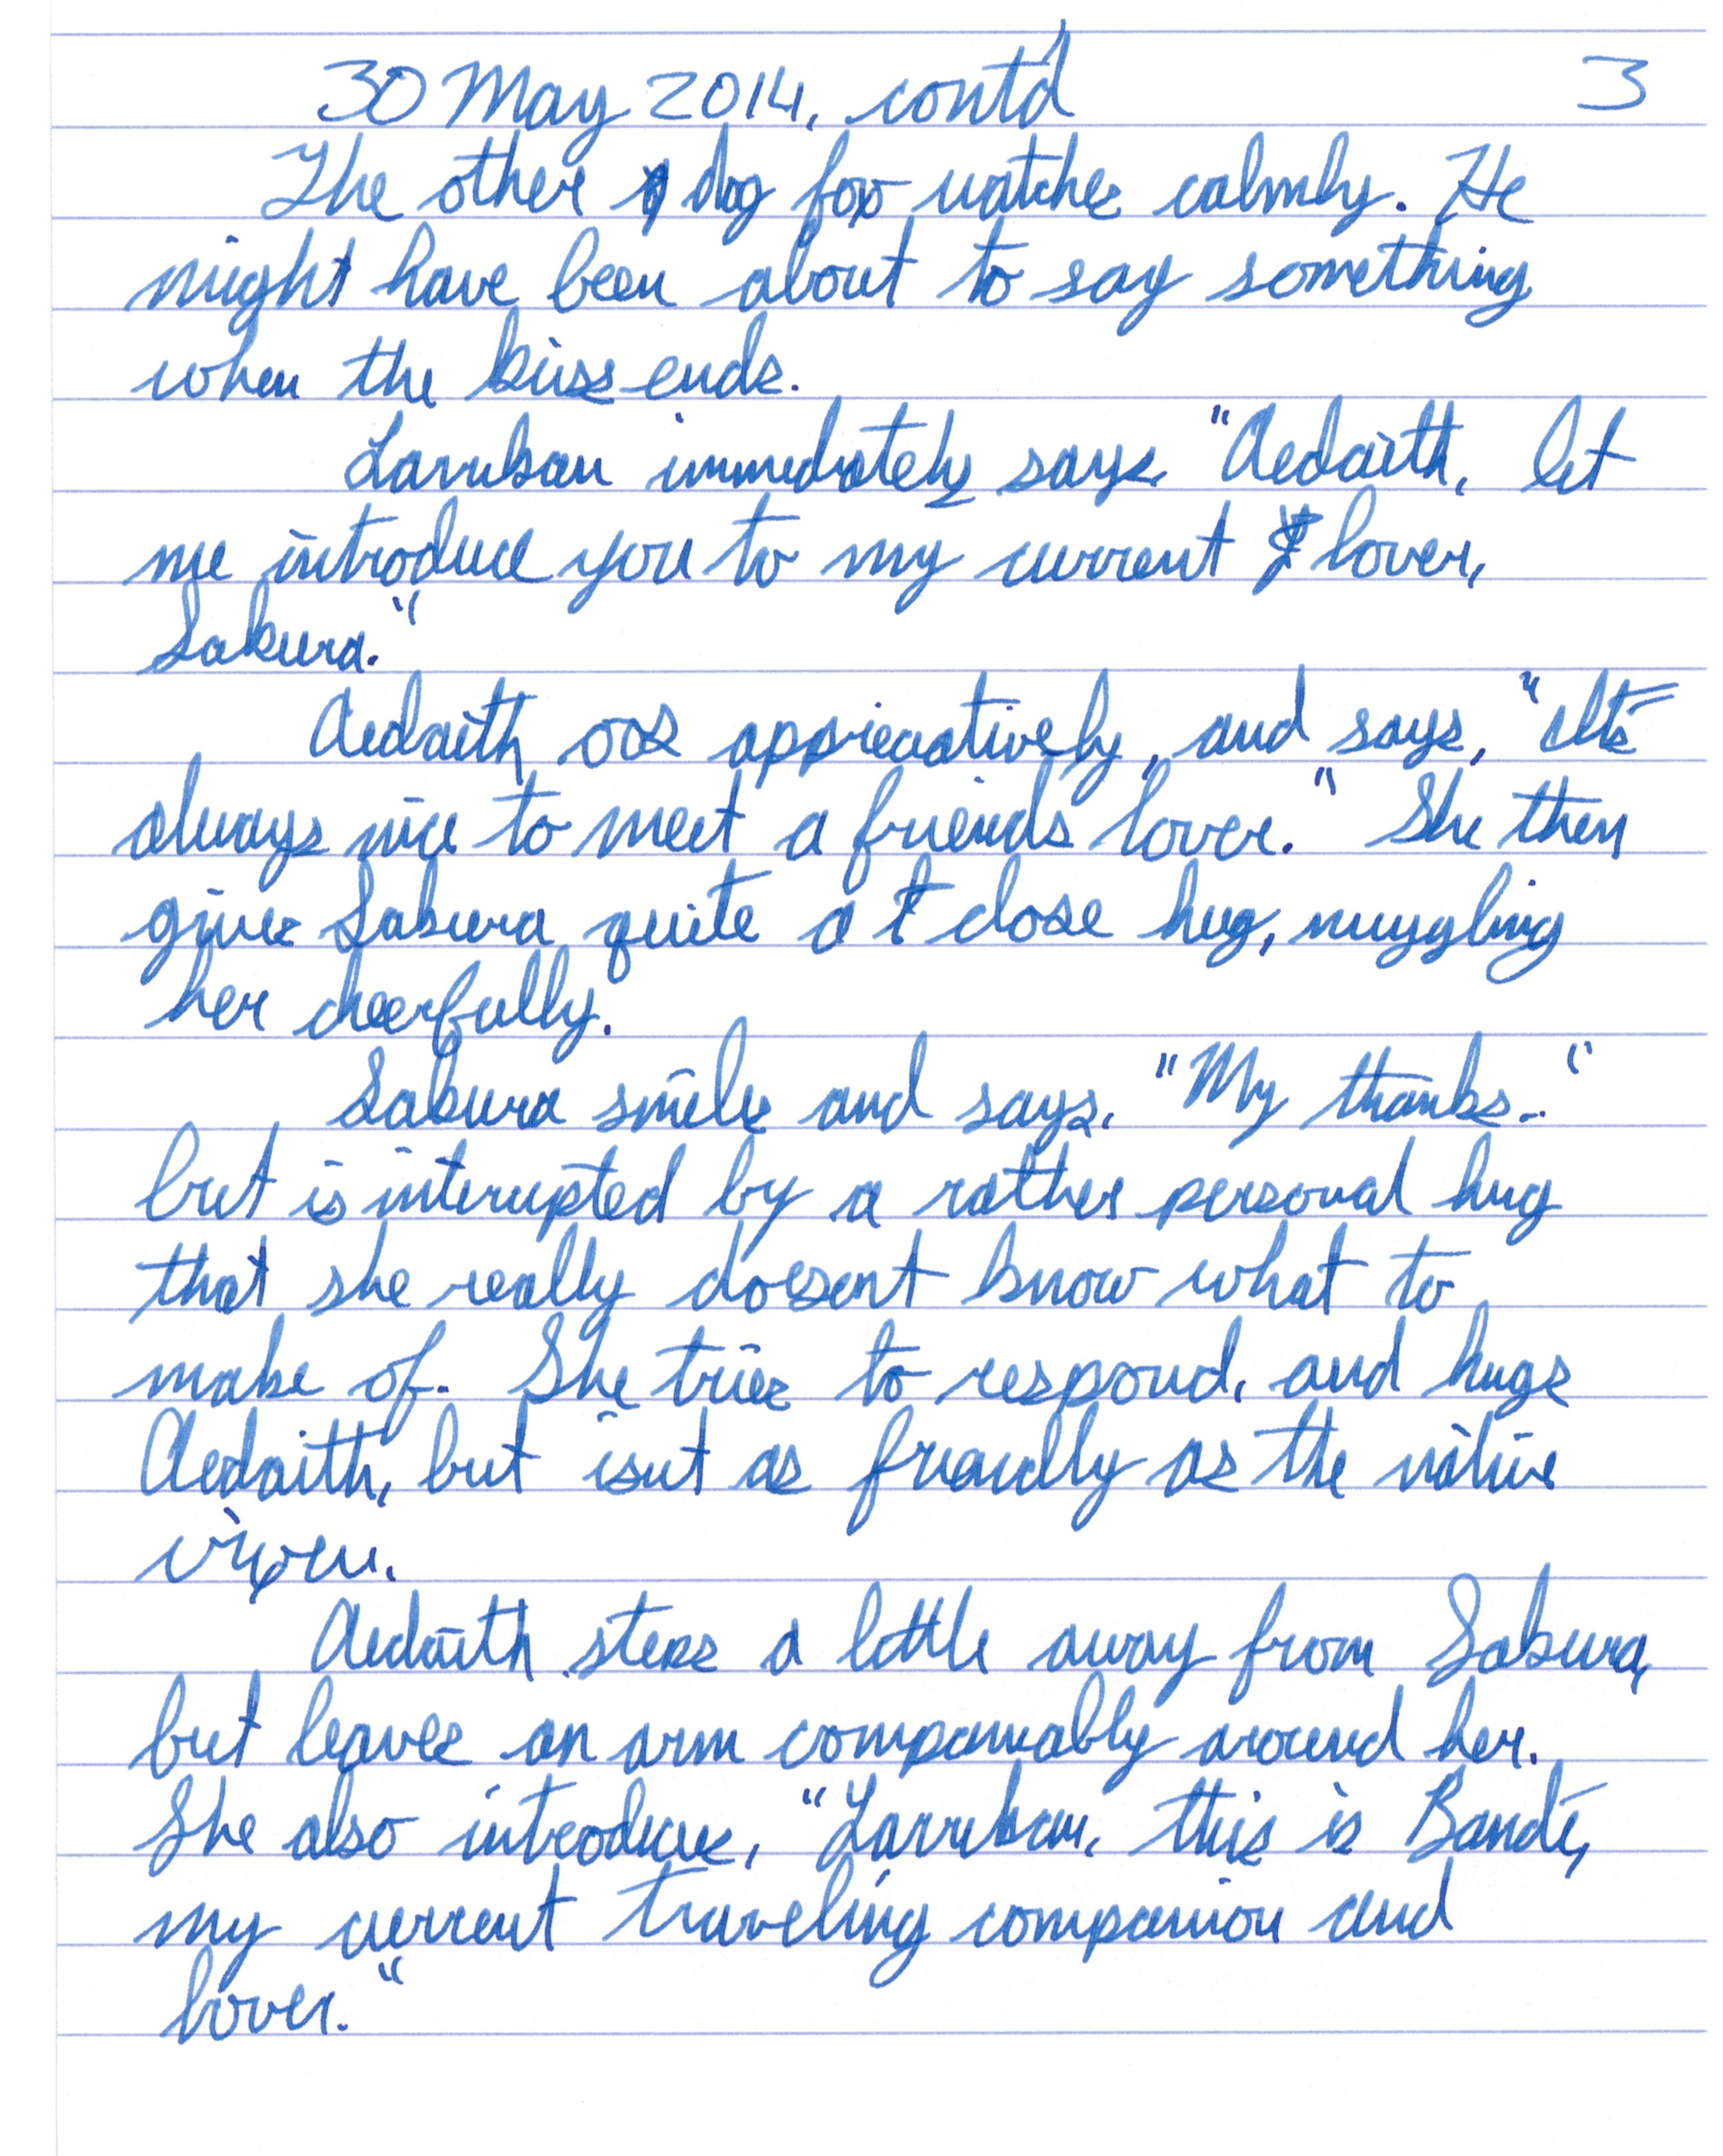 30 May 2014, contd 3
The other dog fox watches calmly. He
might have been about to say something
when the kiss ends.
Larriban immediately says, "Aedaith, let
me introduce you to my current lover,
Sakura."
Aedaith oos appreciatively, and says, "It's
always nice to meet a friend's lover." She then
gives Sakura quite a close hug, nuzzling
her cheerfully.
Sakura smiles and says, "My thanks.."
but is interupted by a rather personal hug
that she really doesn't know what to
make of. She tries to respond, and hugs
Aedaith, but isn't as friendly as the native
vixen.
Aedaith steps a little away from Sakura,
but leaves an arm companiably around her.
She also introduces, "Larriban, this is Bandé,
my current traveling companion and
lover."